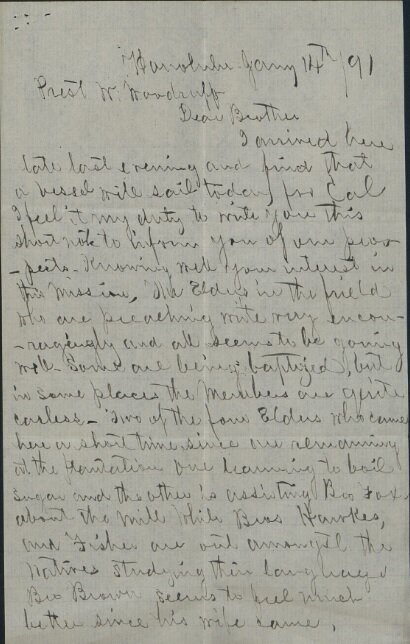 Honolulu Jany 14th /91
Prest W. Woodruff
Dear Brother
I arrived here
late last evening and find that
a vessel will sail today for Cal
I feel it my duty to write you this
short note to inform you of our pros-
-pects. Knowing well your interest in
this Mission, The Elders in the field
who are preaching write very encou-
-ragingly and all seems to be going
well- Some are being baptized, but
in some places the Members are quite
careless- Two of the four Elders who came
here a short time since are remaining
on the plantation one learning to boil
sugar and the other is assisting Bro Fox
about the Mill while Bros Hawkes,
and Fisher are out amongst the
Natives studying their language
Bro Brown seems to feel much
better since his wife came,